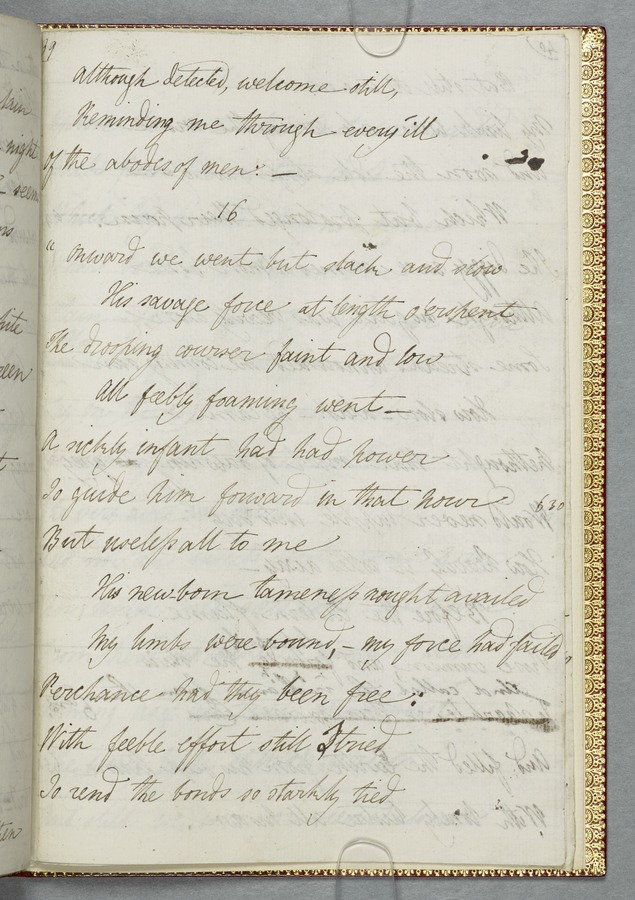 39
although detected, welcome still,
Reminding me through every ill
Of the abodes of men: —
16
" Onward we went but slack and slow
His savage force at length o'erspent
The drooping courser faint and low
All feebly foaming went —
A sickly infant had had power
To guide him forward in that hour
630
But useless all to me
His newborn tameness nought availed
My limbs were bound, — my force had failed,
Perchance had they been free:
With feeble effort still I tried
To rend the bonds so starkly tied
night